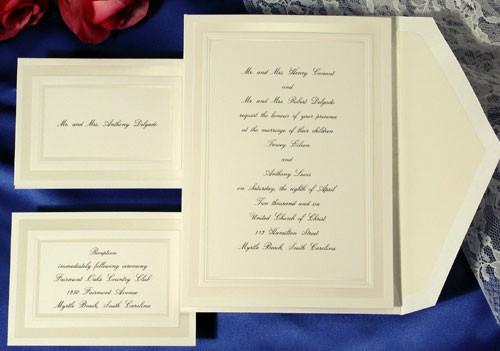 Mr. and Mrs. Anthony Delgado
Reception
immediately following ceremony
Fairmont Oaks Country Club
1850 Fairmont Avenue
Myrtle Beach, South Carolina
Mr. and Mrs. Henry Conant
and
Mr. and Mrs. Robert Delgado
request the honour of your presence
at the marriage of their children
Tracey Eileen
and
Anthony Louis
on Saturday, the eighth of April
Two thousand and six
United Church of Christ
113 Hamilton Street
Myrtle Beach, South Carolina